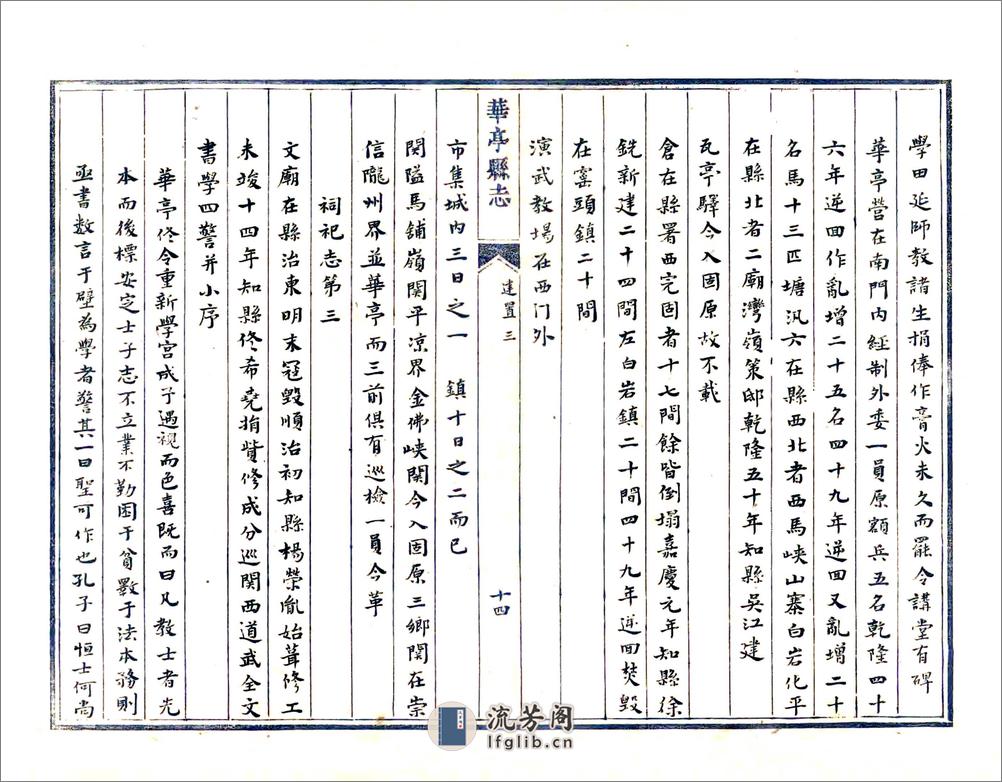 學田延師教諸生捐俸作膏火未久而罷今講堂有碑
華亭營在南門內經制外委一員原額兵五名乾隆四十
六年逆回作亂增二十五名四十九年逆回又亂增二十
名馬十三匹塘汛六在縣西北者西馬峽山寨白岩化平
在縣北者二廟灣嶺策邸乾隆五十年知縣吳江建
瓦亭驛今入固原故不載
倉在縣署西完固者十七間餘皆倒塌嘉慶元年知縣徐
銑新建二十四間左白岩鎮二十間四十九年逆回焚毀
在窰頭鎮二十間
演武教場在西门外
華亭縣志
建置三
十四
市集城内三日之一 鎮十日之二而已
関隘馬舖嶺関平凉界金佛峽関今入固原三鄉関在崇
信隴州界並華亭而三前俱有巡檢一員今革
祠祀志第三
文廟在縣治東明末寇毀順治初知縣楊榮胤始葺修工
未竣十四年知縣佟希堯捐貲修成分巡関西道武全文
書學四警并小序
華亭佟令重新学宫成予遇視而色喜既而曰凡教士者先
本而後標安定士子志不立業不勤困于貧斁于法本務則
亟書数言于壁為學者警其一曰聖可作也孔子曰恒士何尚
流芳阁
lfglib.cn